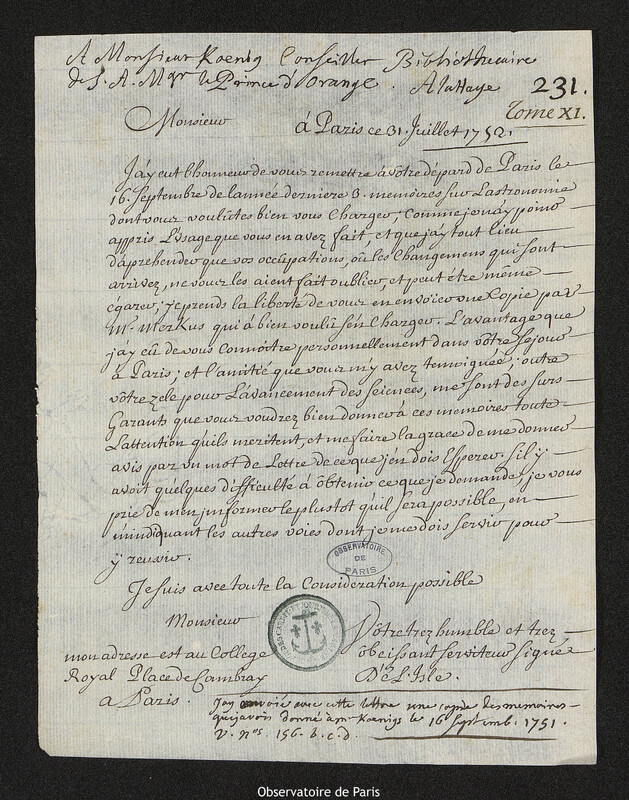 A Monsieur Koenig Conseiller Bibliothecaire
de S. A. Mgr le Prince d'Orange. A la Haye
231.
Tome XI.
Monsieur
á Paris ce 31. Juillet 1752.
Jáy eut l'honneur de vous remettre á vôtre départ de Paris le
16. Septembre de lannée derniere 3. memoires sur Lastronomie
dont vous voulûtes bien vous Charger; Comme je náy point
appris L'usage que vous en avez fait, et que jáy tout lieu
dáprehender que vos occupations, oú les Changemens qui sont
arrivez, ne vous les aient fait oublier, et peut étre même
égarer; je prends la liberté de vous en envoier une Copie par
Mr. Merkus qui á bien voulu sén Charger. L'avantage que
jáy eû de vous Connôitre personnellement dans vôtre Sejour
á Paris; et l'amitié que vous m'y avez temoignée; outre
vôtre zele pour L'avancement des Sciences, me sont des surs
Garants que vous voudrez bien donner á ces memoires toute
L'attention quils meritent, et me faire la grace de me donner
avis par un mot de Lettre de ce que jén dois Esperer. Sil ÿ
avoit quelques difficulté á obtenir ce que je demande, je vous
prie de men jnformer le plustot quil sera possible, en
m'indiquant les autres voies dont je me dois servir pour
ÿ reussir.
OBSERVATOIRE
DE
PARIS
Je suis avec toute la Consideration possible
Monsieur
Vôtre trez humble et trez
mon adresse est au College
ôbeissant serviteur signé
Royal Place de Cambray
De L'Isle.
a Paris.
Jay envoié avec cette lettre une copie des memoires
que j'avois donné à Mr Koenigs le 16 Septemb. 1751.
V. nos. 156. b. c. d.
Observatoire de Paris